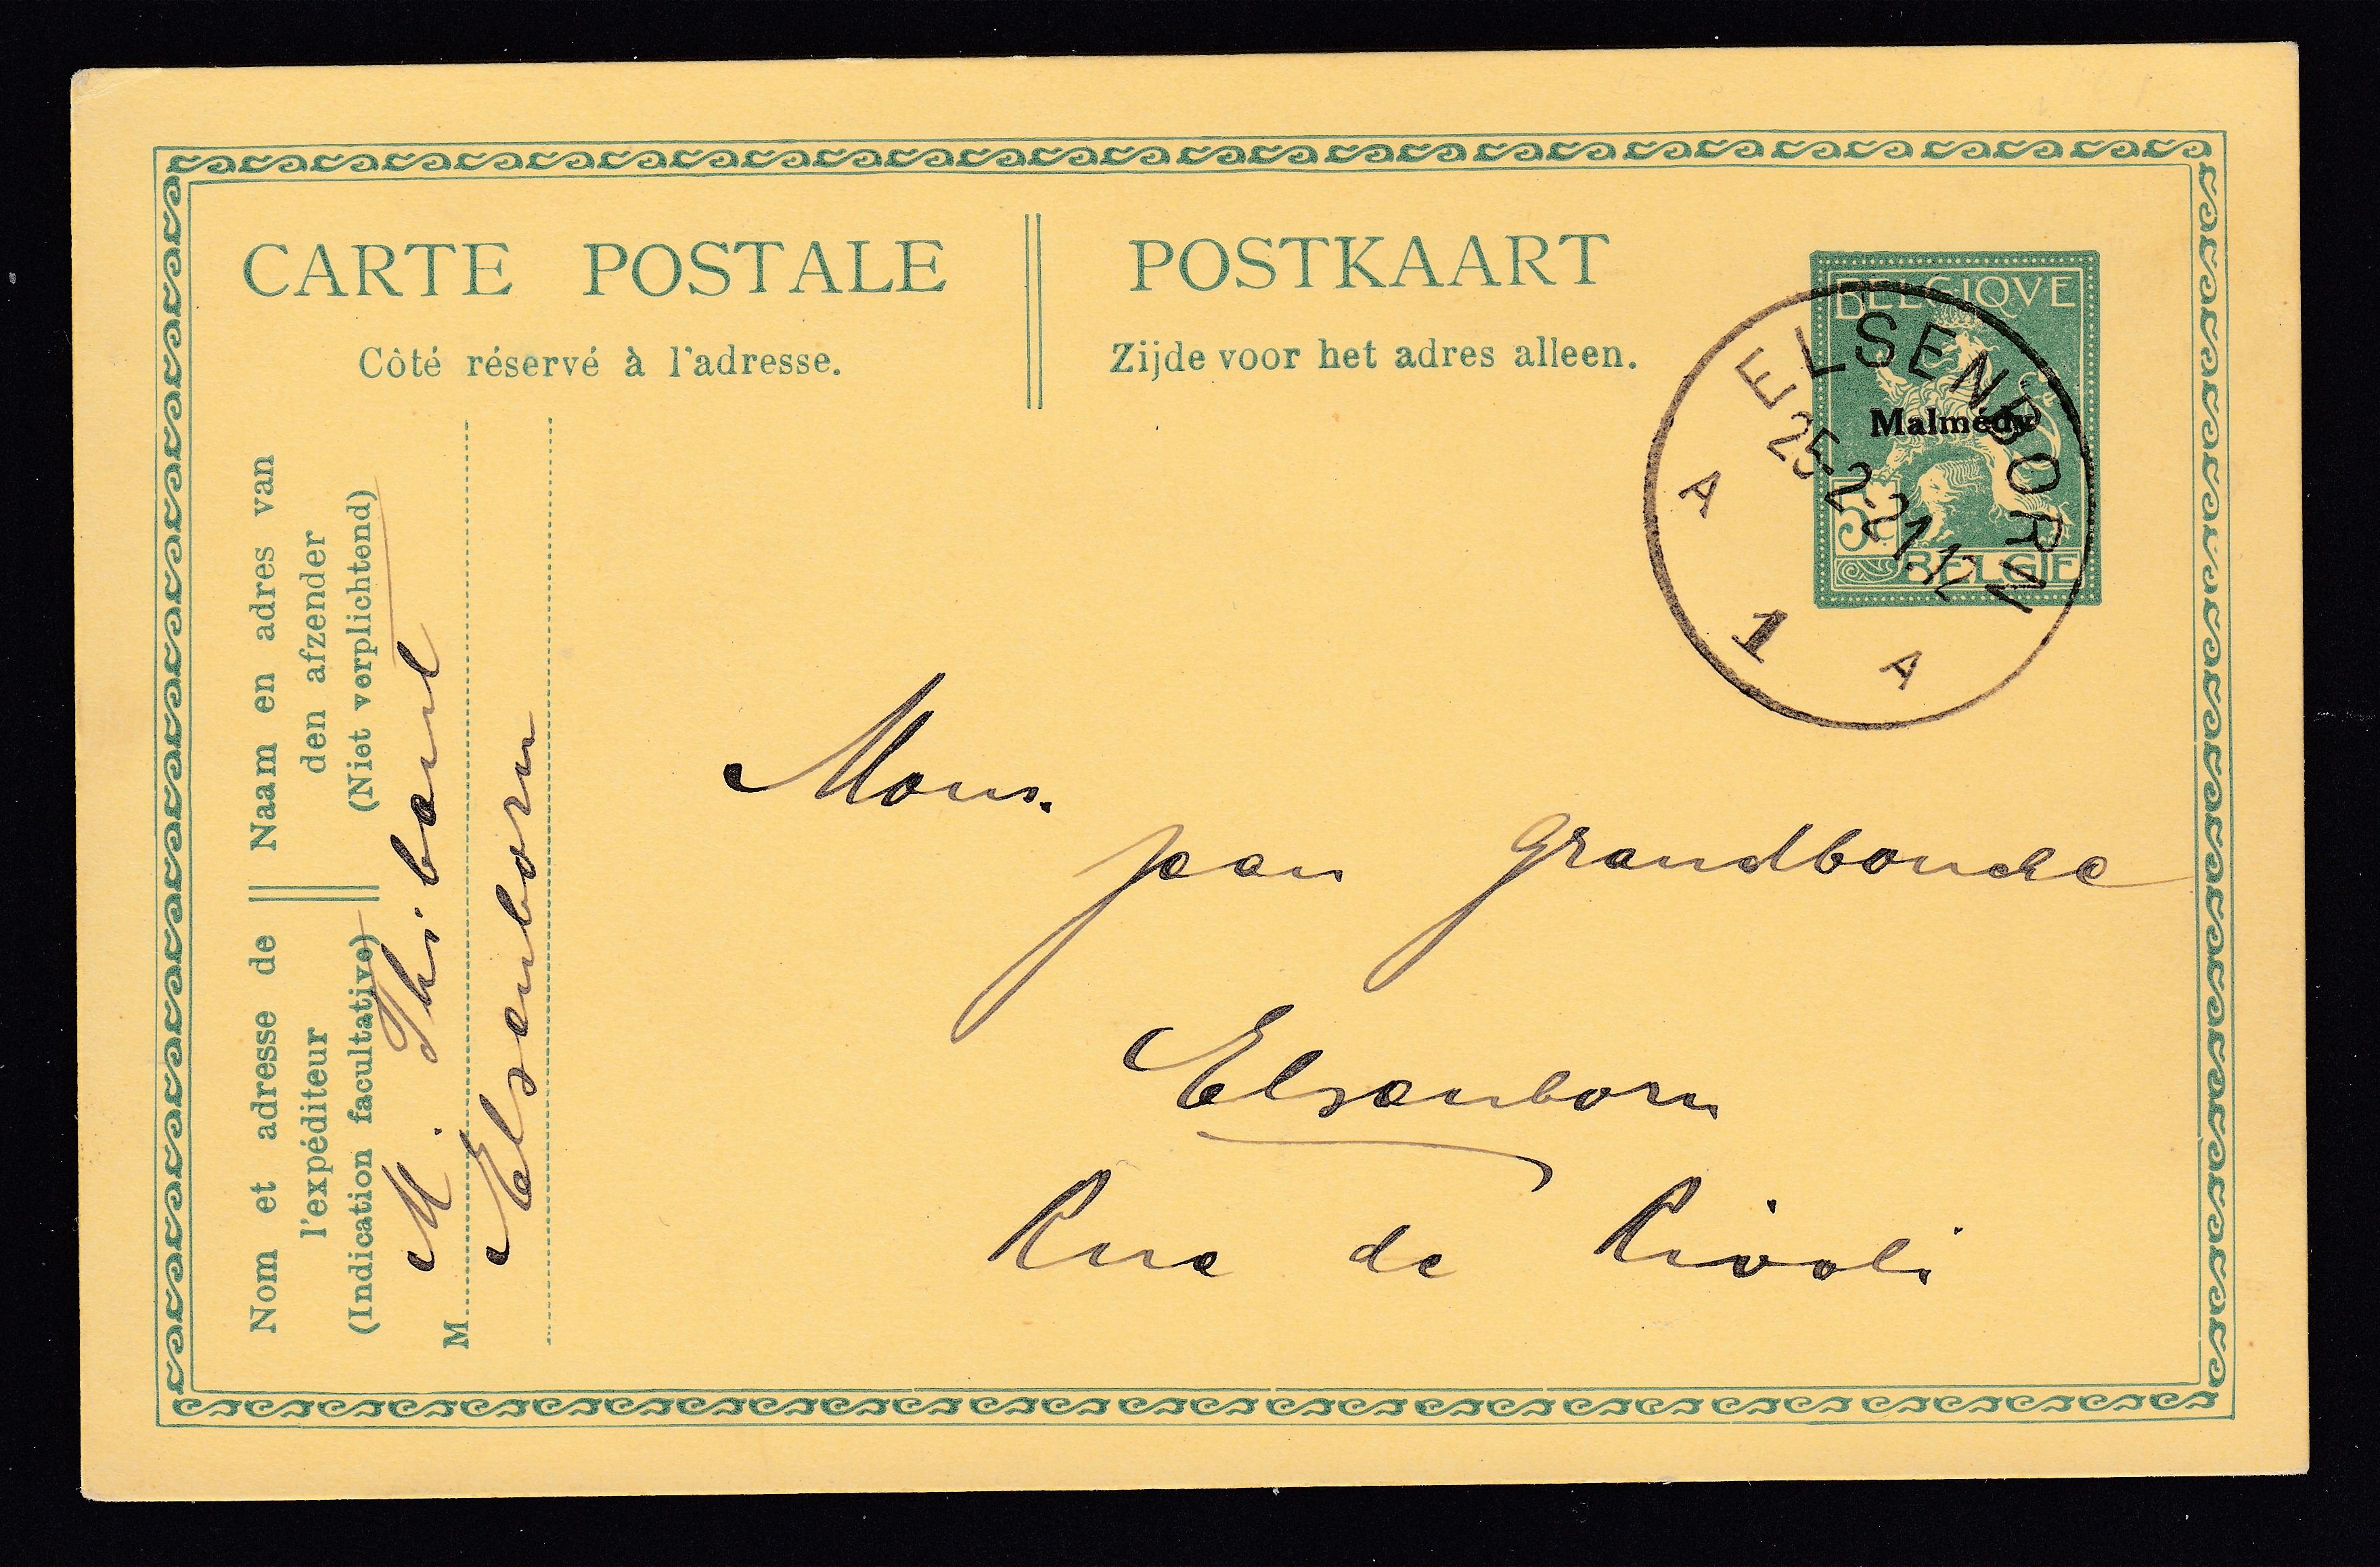 CARTE POSTALE
Côté réservé à l'adresse.
POSTKAART
Zijde voor het adres alleen.
BELGIQVE
Malmédy
5
BELGIE
ELSENBORN
25-2-21.12
A 1 A
Nom et adresse de
l'expéditeur
(Indication facultative)
Naam en adres van
den afzender
(Niet verplichtend)
M. Thibaut
M
Elsenborn
Mons.
Jean Grandbouche
Elsenborn
Rue de Rivoli